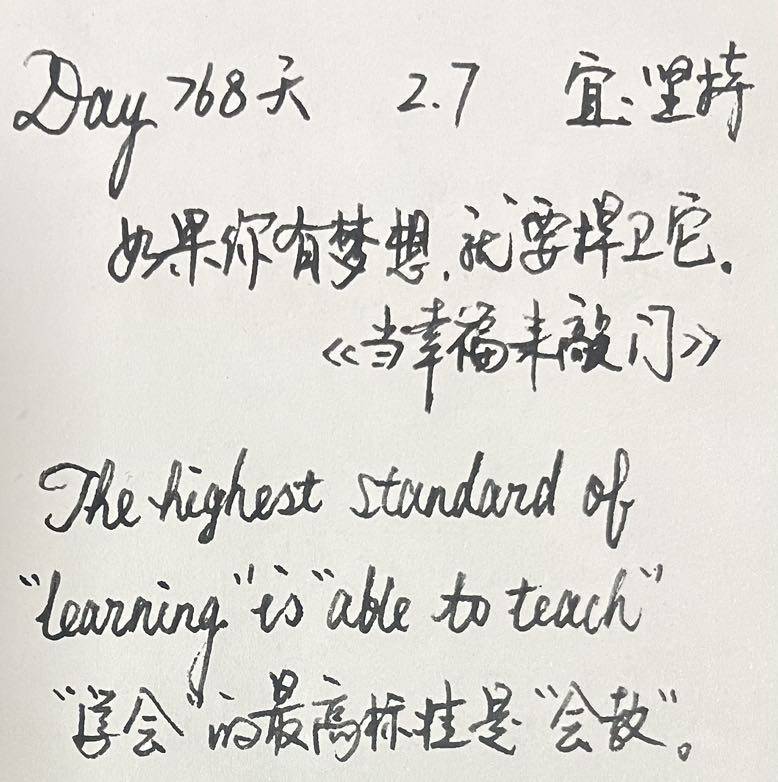 Day 768天 2.7 宜:坚持
如果你有梦想,就要捍卫它.
《当幸福来敲门》
The highest standard of
"learning" is "able to teach"
"学会"的最高标准是"会教"。